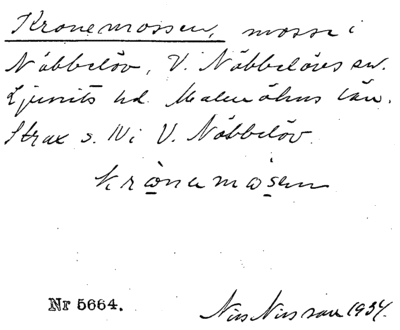 Kronemossen, mosse i
Näbbelöv, V. Näbbelövs sn.
Ljunits hd. Malmöhus län.
Strax s. N i V. Näbbelöv.
krånamosen
Nr 5664.
Nils Nilsson 1934.